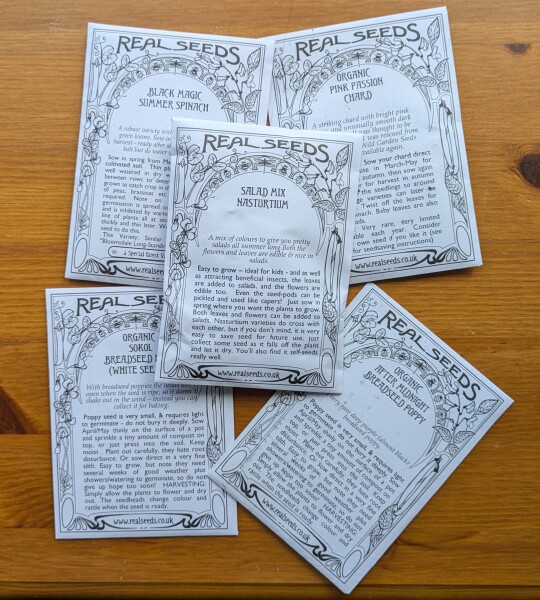 REAL SEEDS
BLACK MAGIC
SUMMER SPINACH
A robust variety with
green leaves. Sow in
harvest - ready after a
bolt but do water
Sow is spring from Ma
cultivated soil. This pl
well watered in dry w
between rows or dens
grown as catch crop in t
of peas, brassicas etc
required. Note on
germination is spread ou
and is inhibited by warm
line of plants all at on
thickly and thin later. W
second to sow this.
This Variety: Similar
"Bloomsdale Long-Standi
A Special Guest V
www.realse
REAL SEEDS
ORGANIC
PINK PASSION
CHARD
A striking chard with bright pink
and unusually smooth dark
was thought to be
t was rescued from
Wild Garden Seeds
available again.
Sow your chard direct
site in March/May for
autumn, then sow again
for harvest in autumn
the seedlings to around
ge varieties can later be
Twist off the leaves for
nach. Baby leaves are also
ads.
Very rare, very limited
able each year. Consider
own seed if you like it (see
for seedsaving instructions)
www.realseeds.co.uk
REAL SEEDS
SALAD MIX
NASTURTIUM
A mix of colours to give you pretty
salads all summer long. Both the
flowers and leaves are edible & nice in
salads.
Easy to grow – ideal for kids - and as well
as attracting beneficial insects, the leaves
are added to salads, and the flowers are
edible too. Even the seed-pods can be
pickled and used like capers! Just sow in
spring where you want the plants to grow.
Both leaves and flowers can be added to
salads. Nasturtium varieties do cross with
each other, but if you don't mind, it is very
easy to save seed for future use, just
collect some seed as it falls off the plant
and let it dry. You'll also find it self-seeds
really well.
www.realseeds.co.uk
REAL SEE
ORGANIC
SOKOL
BREADSEED
(WHITE SEE
With breadseed poppies the heads
open when the seed is ripe, so it doesn't
shake out in the wind - instead you can
collect it for baking.
Poppy seed is very small, & requires light
to germinate - do not bury it deeply. Sow
April/May thinly on the surface of a pot
and sprinkle a tiny amount of compost on
top, or just press into the soil. Keep
moist. Plant out carefully, they hate root
disturbance. Or sow direct in a very fine
tilth. Easy to grow, but note they need
several weeks of good weather plus
showers/watering to germinate, so do not
give up hope too soon! HARVESTING:
Simply allow the plants to flower and dry
out. The seedheads change colour and
rattle when the seed is ready.
www.realseeds.co.uk
REAL SEEDS
ORGANIC
AFTER MIDNIGHT
BREADSEED POPPY
Very rare, deep purple (almost black)
breadseed poppy.
Poppy seed is very small, & requires light
to germinate - do not bury it deeply. Sow
www.realseeds.co.uk